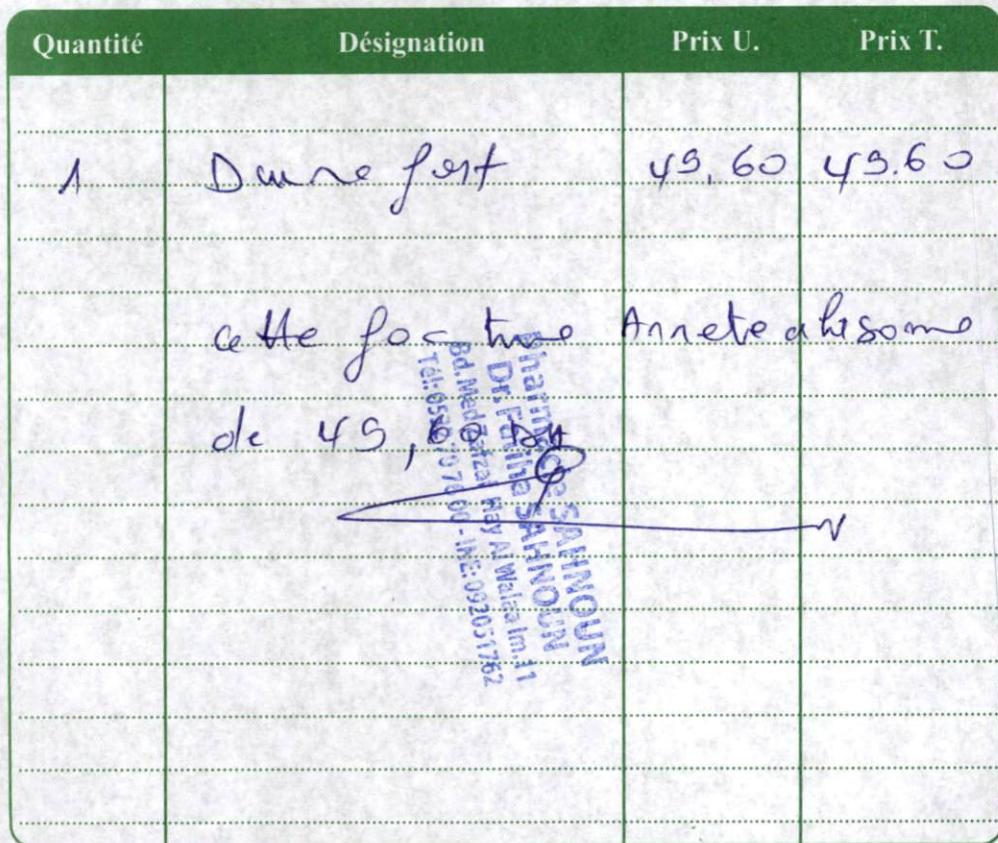 Quantité Désignation Prix U. Prix T.
1 Daune fort 49,60 49.60
cette facture Arrete a la some
de 49,60 DH
Pharmacie SAHNOUN
Dr. Fatiha SAHNOUN
Bd. Med Hay Al Walaa Im.11
INE: 092051762